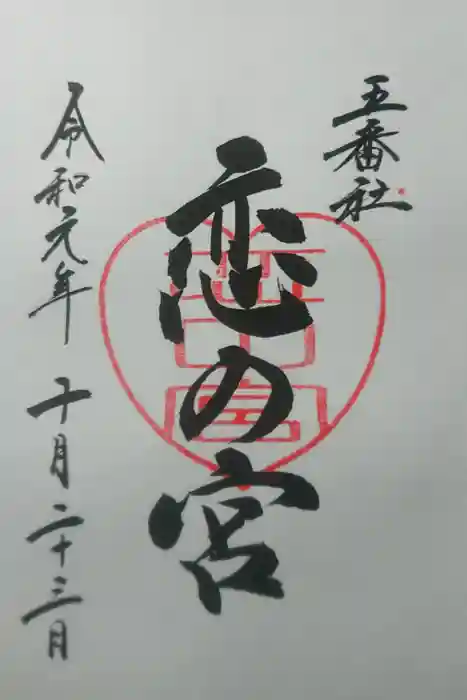 五番社
恋の宮
令和元年十月二十三日